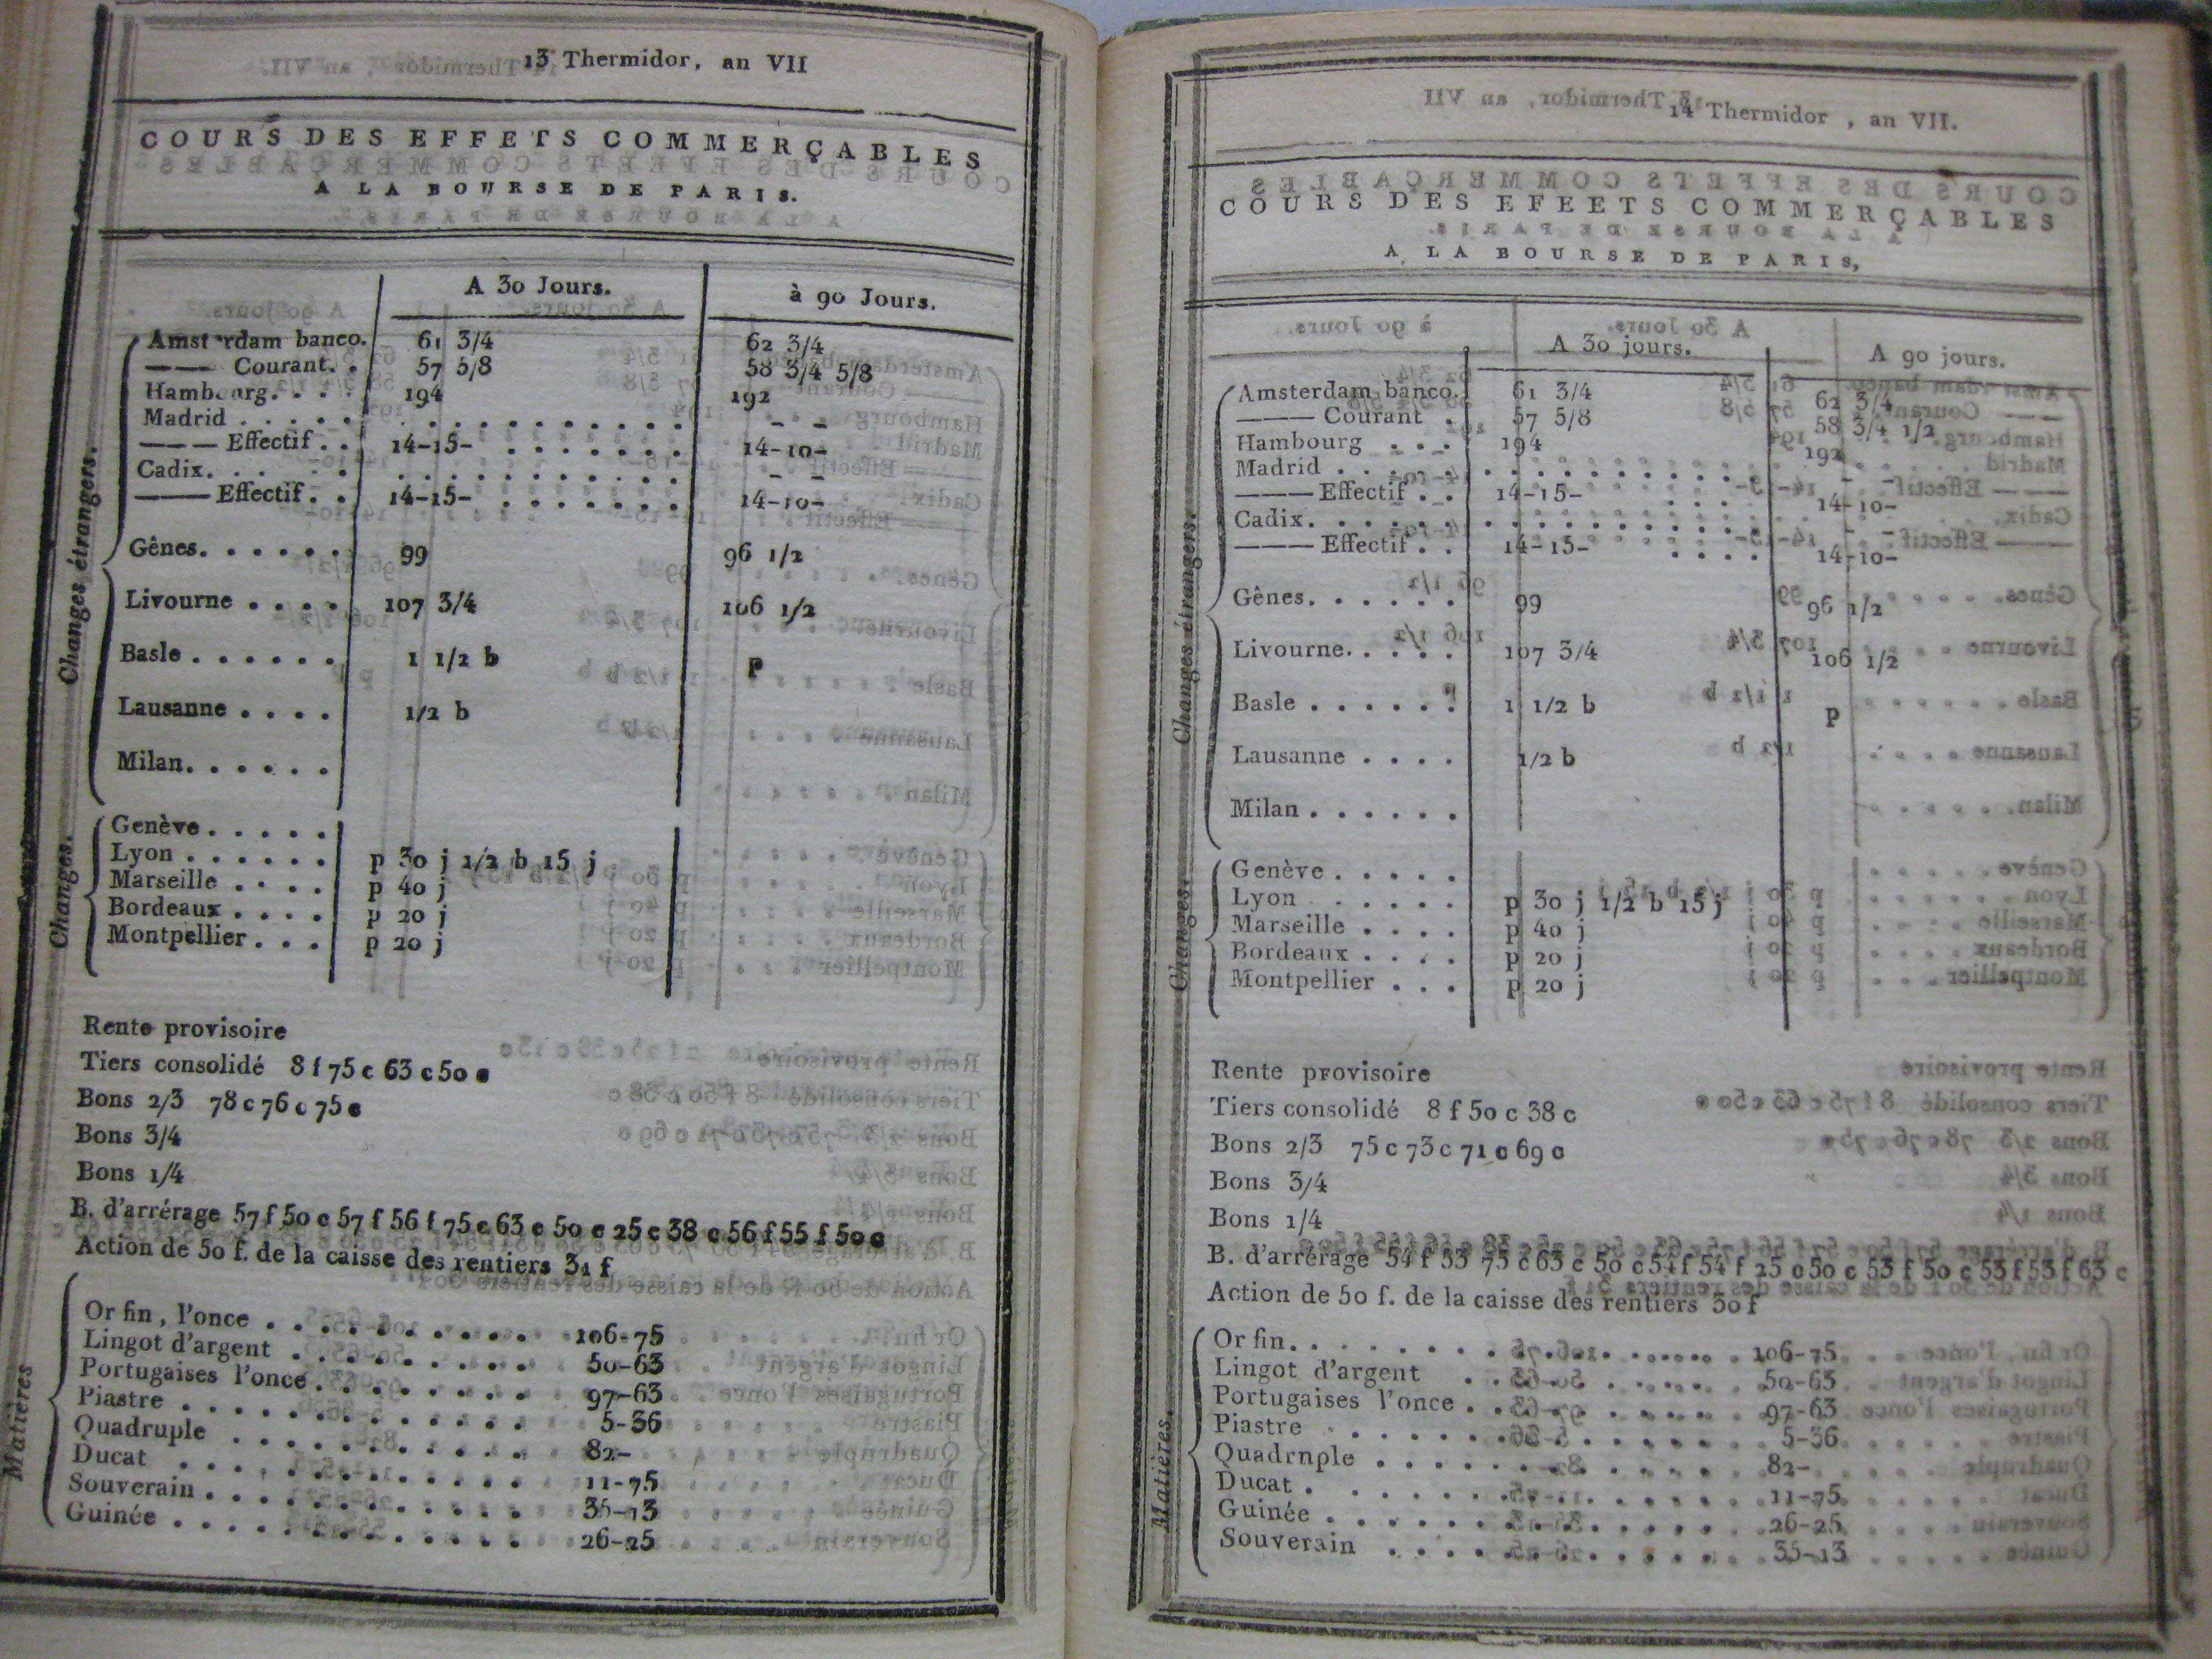 13 Thermidor, an VII
COURS DES EFFETS COMMERÇABLES
A LA BOURSE DE PARIS.
A 30 Jours. à 90 Jours.
Changes étrangers.
Amsterdam banco. 61 3/4 62 3/4
——— Courant. . 57 5/8 58 3/4 5/8
Hambourg. . . . 194 192
Madrid . . . . . . . . . . . . . . . – –
——— Effectif . . 14-15- . . . . . . . 14-10-
Cadix. . . . . . . . . . . . . . . – –
——— Effectif . . 14-15- . . . . . . . 14-10-
Gênes. . . . . . 99 96 1/2
Livourne . . . . 107 3/4 106 1/2
Basle . . . . . . 1 1/2 b p
Lausanne . . . . 1/2 b
Milan. . . . . .
Changes.
Genève . . . . .
Lyon . . . . . . p 30 j 1/2 b 15 j
Marseille . . . . p 40 j
Bordeaux . . . . p 20 j
Montpellier . . . p 20 j
Rente provisoire
Tiers consolidé 8 f 75 c 63 c 50 c
Bons 2/3 78 c 76 c 75 c
Bons 3/4
Bons 1/4
B. d'arrérage 57 f 50 c 57 f 56 f 75 c 63 c 50 c 25 c 38 c 56 f 55 f 50 c
Action de 50 f. de la caisse des rentiers 31 f
Matières
Or fin, l'once . . . . . . . . . . 106-75
Lingot d'argent . . . . . . . . . 50-63
Portugaises l'once . . . . . . . . 97-63
Piastre . . . . . . . . . . . . . 5-36
Quadruple . . . . . . . . . . . 82-
Ducat . . . . . . . . . . . . . 11-75
Souverain . . . . . . . . . . . . 35-13
Guinée . . . . . . . . . . . . . 26-25
14 Thermidor , an VII.
COURS DES EFEETS COMMERÇABLES
A LA BOURSE DE PARIS,
A 30 jours. A 90 jours.
Changes étrangers.
Amsterdam banco. 61 3/4 62 3/4
——— Courant . 57 5/8 58 3/4 1/2
Hambourg . . . 194 192
Madrid . . . . . . . . . . . . . . . – –
——— Effectif . . 14-15- . . . . 14-10-
Cadix. . . . . . . . . . . . . . . – –
——— Effectif . . 14-15- . . . . 14-10-
Gênes. . . . . . 99 96 1/2
Livourne. . . . . 107 3/4 106 1/2
Basle . . . . . . 1 1/2 b p
Lausanne . . . . 1/2 b
Milan . . . . . .
Changes.
Genève . . . . .
Lyon . . . . . p 30 j 1/2 b 15 j
Marseille . . . . p 40 j
Bordeaux . . . . p 20 j
Montpellier . . . p 20 j
Rente provisoire
Tiers consolidé 8 f 50 c 38 c
Bons 2/3 75 c 73 c 71 c 69 c
Bons 3/4
Bons 1/4
B. d'arrérage 54 f 53 75 c 63 c 50 c 54 f 54 f 25 c 50 c 53 f 50 c 53 f 53 f 63 c
Action de 50 f. de la caisse des rentiers 30 f
Matières.
Or fin. . . . . . . . . . . . . . 106-75
Lingot d'argent . . . . . . . . . 50-63
Portugaises l'once . . . . . . . . 97-63
Piastre . . . . . . . . . . . . . 5-36
Quadrnple . . . . . . . . . . . 82-
Ducat . . . . . . . . . . . . . 11-75
Guinée . . . . . . . . . . . . . 26-25
Souverain . . . . . . . . . . . . 35-13